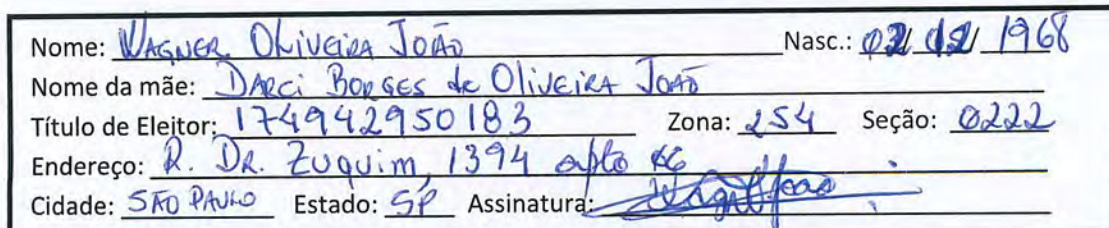 Nome: WAGNER OLIVEIRA JOÃO Nasc.: 02/12/1968
Nome da mãe: DARCI BORGES de OLIVEIRA JOÃO
Título de Eleitor: 174942950183 Zona: 254 Seção: 0222
Endereço: R. DR. ZUQUIM, 1394 apto
Cidade: SÃO PAULO Estado: SP Assinatura: